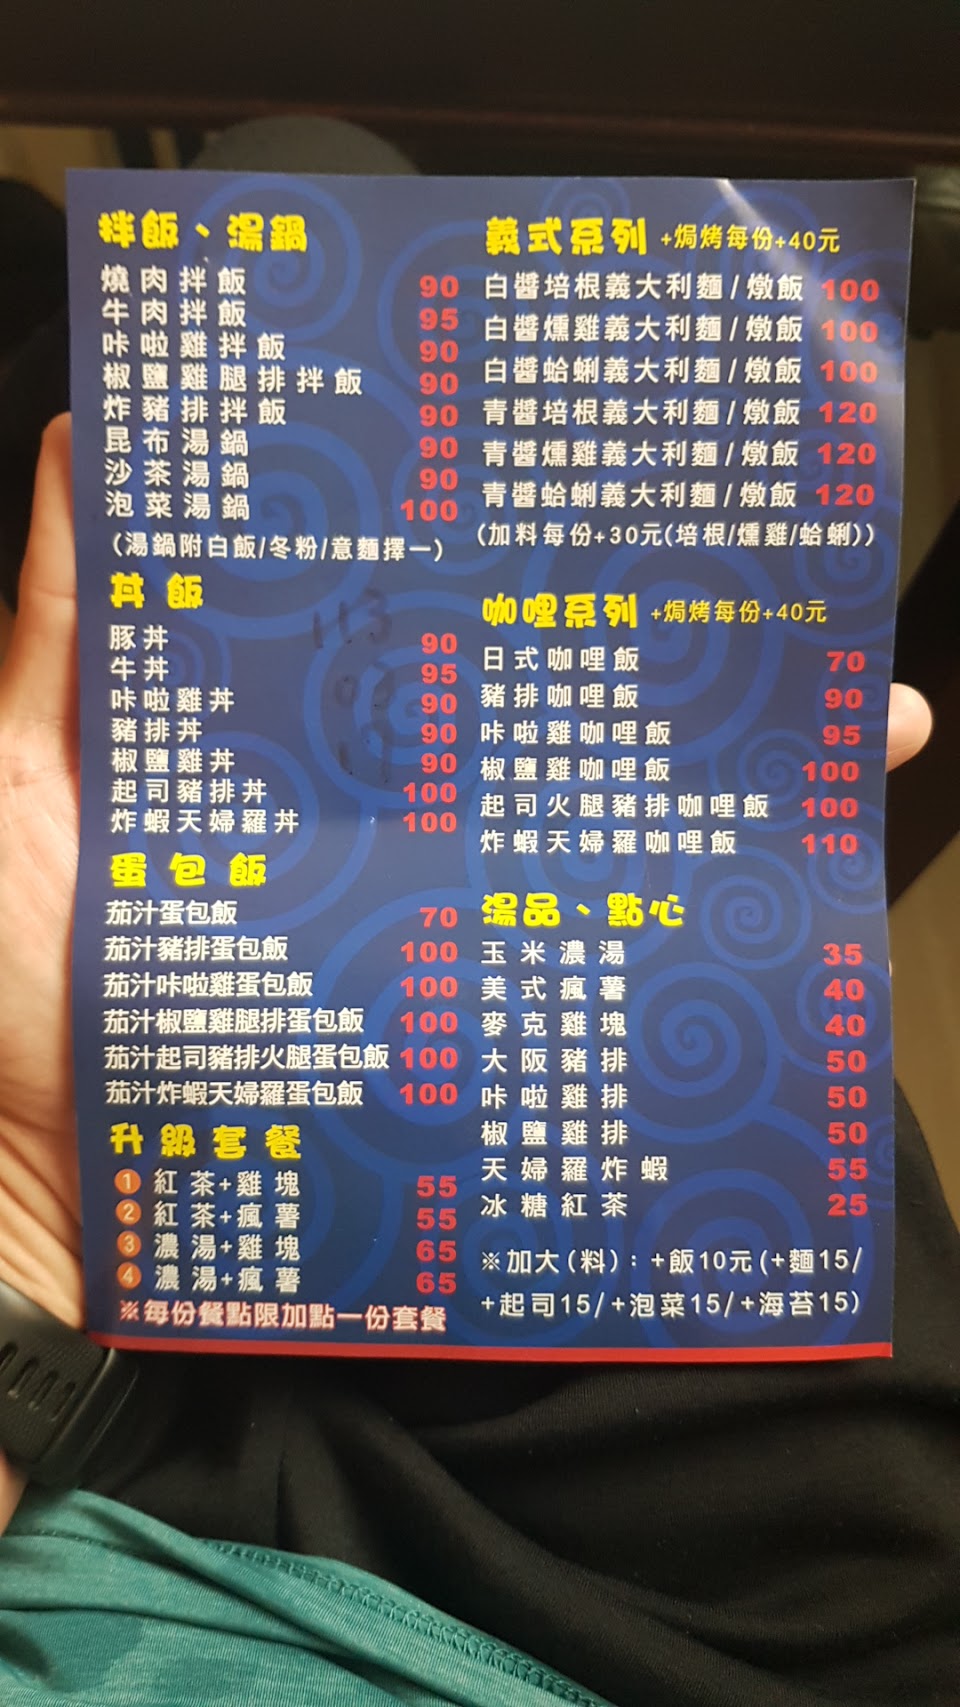 拌飯、湯鍋
燒肉拌飯 90
牛肉拌飯 95
咔啦雞拌飯 90
椒鹽雞腿排拌飯 90
炸豬排拌飯 90
昆布湯鍋 90
沙茶湯鍋 90
泡菜湯鍋 100
(湯鍋附白飯/冬粉/意麵擇一)
丼飯
豚丼 90
牛丼 95
咔啦雞丼 90
豬排丼 90
椒鹽雞丼 90
起司豬排丼 100
炸蝦天婦羅丼 100
蛋包飯
茄汁蛋包飯 70
茄汁豬排蛋包飯 100
茄汁咔啦雞蛋包飯 100
茄汁椒鹽雞腿排蛋包飯 100
茄汁起司豬排火腿蛋包飯 100
茄汁炸蝦天婦羅蛋包飯 100
升級套餐
1 紅茶+雞塊 55
2 紅茶+瘋薯 55
3 濃湯+雞塊 65
4 濃湯+瘋薯 65
※每份餐點限加點一份套餐
義式系列 +焗烤每份+40元
白醬培根義大利麵/燉飯 100
白醬燻雞義大利麵/燉飯 100
白醬蛤蜊義大利麵/燉飯 100
青醬培根義大利麵/燉飯 120
青醬燻雞義大利麵/燉飯 120
青醬蛤蜊義大利麵/燉飯 120
(加料每份+30元(培根/燻雞/蛤蜊))
咖哩系列 +焗烤每份+40元
日式咖哩飯 70
豬排咖哩飯 90
咔啦雞咖哩飯 95
椒鹽雞咖哩飯 100
起司火腿豬排咖哩飯 100
炸蝦天婦羅咖哩飯 110
湯品、點心
玉米濃湯 35
美式瘋薯 40
麥克雞塊 40
大阪豬排 50
咔啦雞排 50
椒鹽雞排 50
天婦羅炸蝦 55
冰糖紅茶 25
※加大(料):+飯10元(+麵15/
+起司15/+泡菜15/+海苔15)